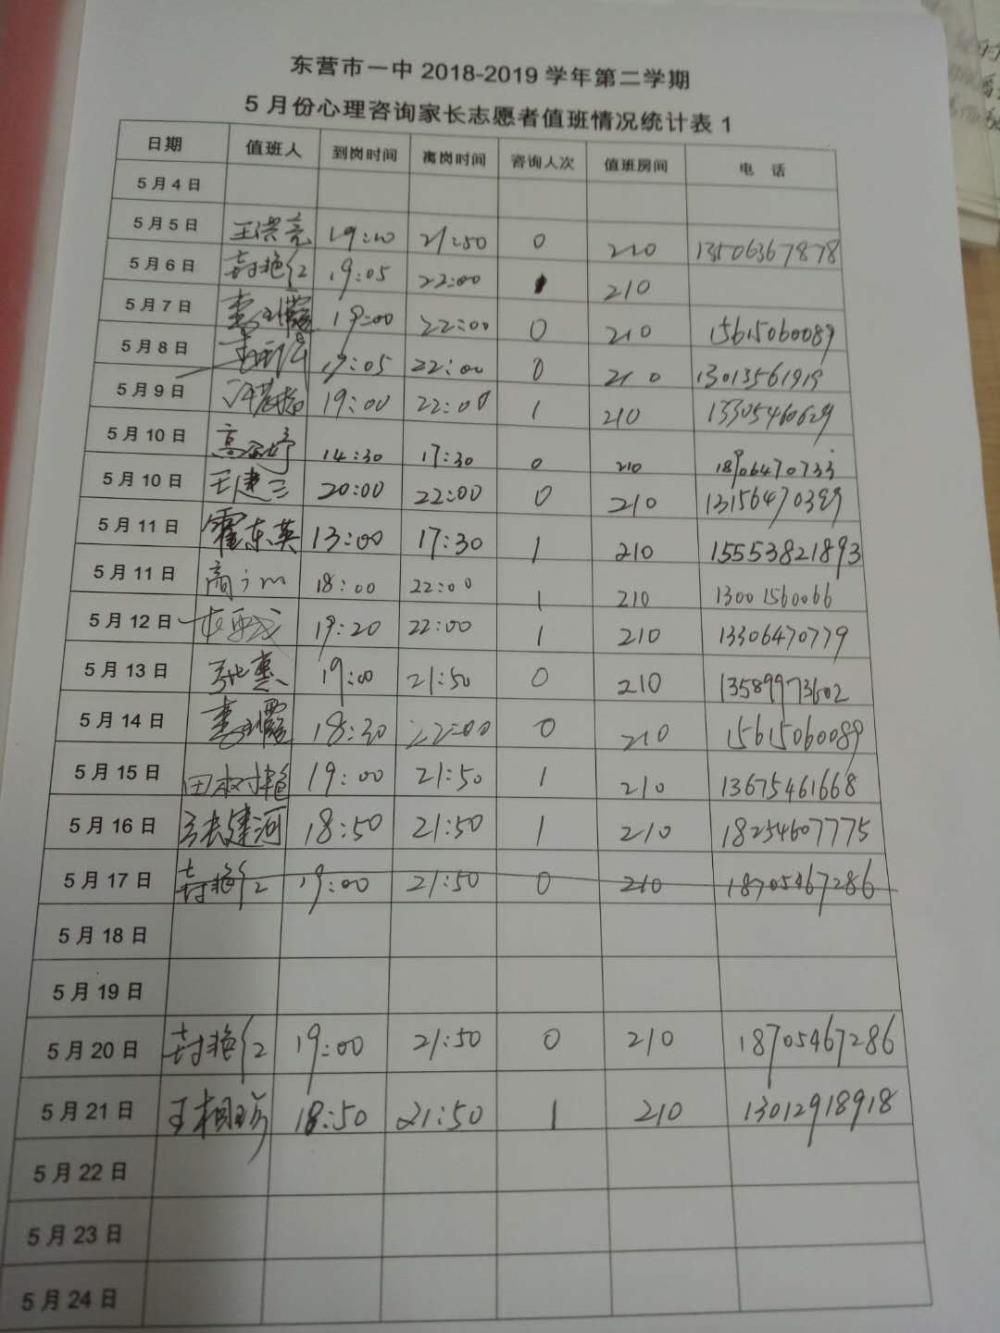 东营市一中 2018-2019 学年第二学期
5 月份心理咨询家长志愿者值班情况统计表 1
日期 值班人 到岗时间 离岗时间 咨询人次 值班房间 电 话
5 月 4 日
5 月 5 日 王洪亮 19:10 21:50 0 210 13506367878
5 月 6 日 封艳红 19:05 22:00 1 210
5 月 7 日 19:00 22:00 0 210 15615060089
5 月 8 日 19:05 22:00 0 210 13013561919
5 月 9 日 19:00 22:00 1 210 13305460629
5 月 10 日 14:30 17:30 0 210 18906470733
5 月 10 日 王建三 20:00 22:00 0 210 13156470399
5 月 11 日 霍东英 13:00 17:30 1 210 15553821893
5 月 11 日 18:00 22:00 1 210 13001560066
5 月 12 日 19:20 22:00 1 210 13306470779
5 月 13 日 张惠 19:00 21:50 0 210 13589973602
5 月 14 日 18:30 22:00 0 210 15615060089
5 月 15 日 田树艳 19:00 21:50 1 210 13675461668
5 月 16 日 张建河 18:50 21:50 1 210 18254607775
5 月 17 日 封艳红 19:00 21:50 0 210 18705467286
5 月 18 日
5 月 19 日
5 月 20 日 封艳红 19:00 21:50 0 210 18705467286
5 月 21 日 王相珍 18:50 21:50 1 210 13012918918
5 月 22 日
5 月 23 日
5 月 24 日